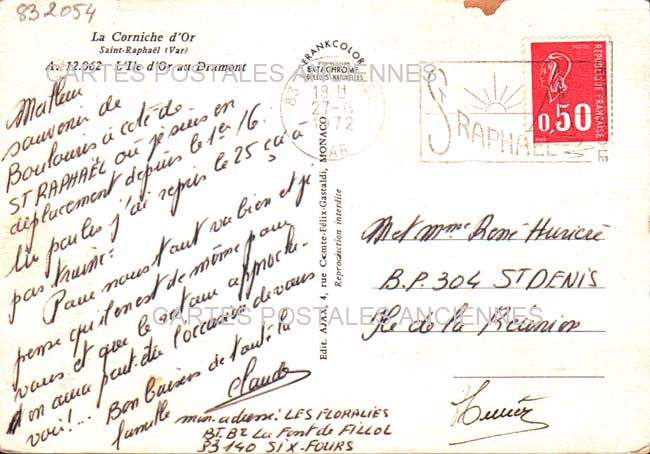 832054
La Corniche d'Or
Saint-Raphaël (Var)
A. 12.062 - L'Ile d'Or au Dramont
CARTES POSTALES ANCIENNES
souvenir de
Boulouris à coté de
ST RAPHAËL où je suis en
déplacement depuis le 1er/6.
tu parles j'ai repris le 25 ça à
pas trainé.
Pour nous tout va bien et je
pense qu'il en est de même pour
vous et que le
on aura peut être l'occasion de vous
voir!... Bon baisers de toute la
famille
Claude
mon adresse: LES FLORALIES
BT. B2 La Font de FILLOL
83140 SIX-FOURS
FRANKCOLOR
EKTACHROME
COULEURS NATURELLES
Edit. AJAX, 4, rue Comte-Félix-Gastaldi, MONACO
Reproduction interdite
83
18 H
27-6
1972
VAR
ST RAPHAEL
POSTES
REPUBLIQUE FRANÇAISE
0,50
M et Mme René
B.P. 304 ST DENIS
Ile de la Réunion
CARTES POSTALES ANCIENNES